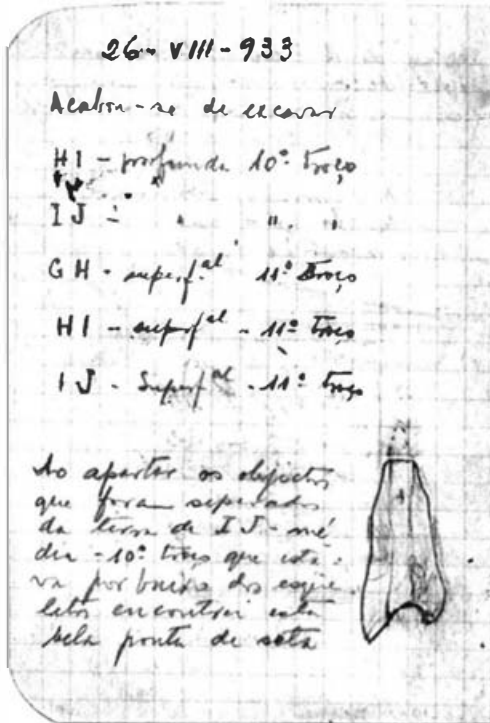 26 - VIII - 933
Acabou-se de excavar
HI - profunda 10º troço
IJ - " " "
GH - superf.al 11º troço
HI - superf.al - 11º troço
IJ - Superf.al - 11º troço
Ao apartar os objectos
que foram separados
da terra de IJ - mé
dia - 10º troço que esta-
va por baixo dos esque
letos encontrei esta
bela ponta de seta